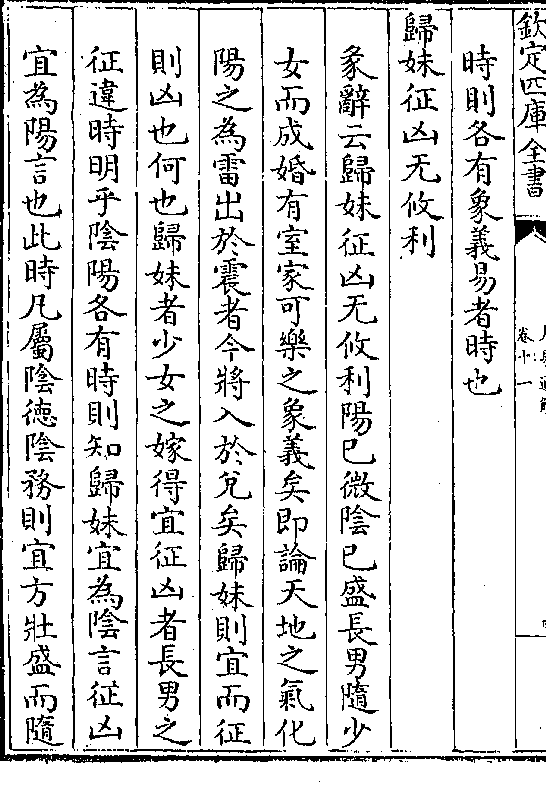 欽定四庫全書
卷十一
時則各有象義易者時也
歸妹征凶无攸利
彖辭云歸妹征凶无攸利陽已微陰已盛長男隨少
女而成婚有室家可樂之象義矣即論天地之氣化
陽之為雷出於震者今將入於兌矣歸妹則宜而征
則凶也何也歸妹者少女之嫁得宜征凶者長男之
征違時明乎陰陽各有時則知歸妹宜為陰言征凶
宜為陽言也此時凡屬陰德陰務則宜方壯盛而隨